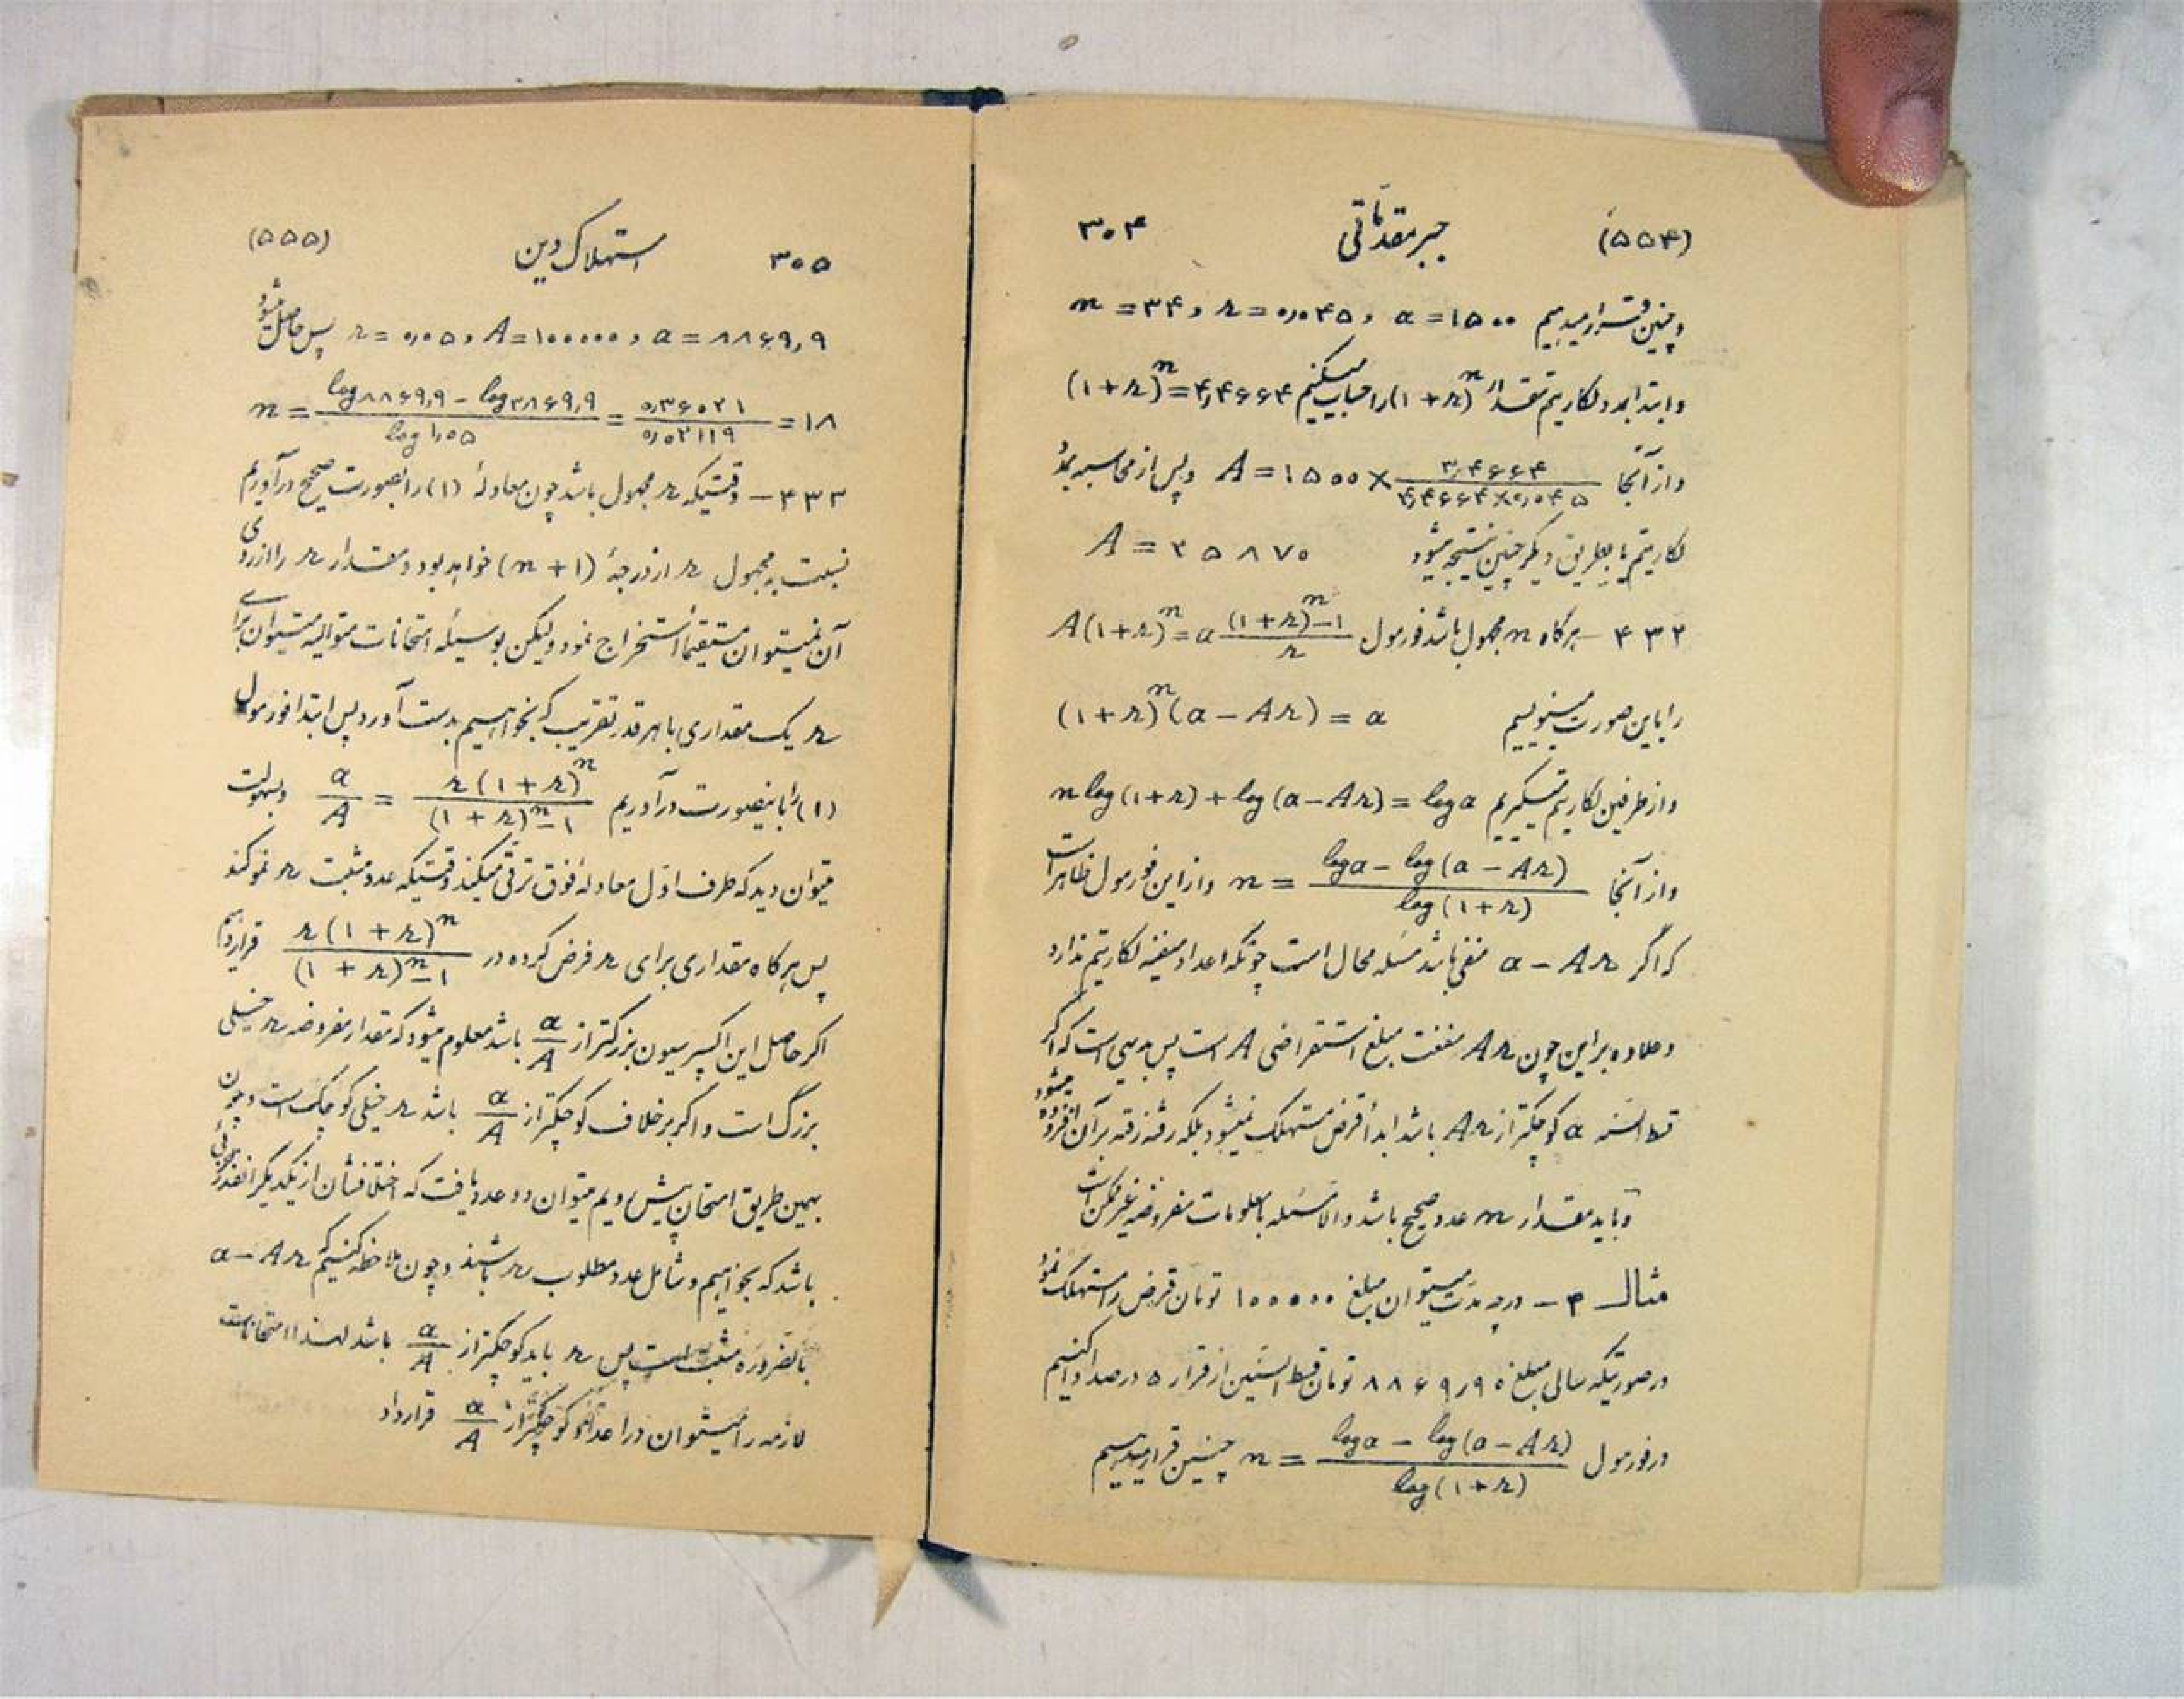 (۵۵۴) جبر مقدماتی ۳۰۴
و چنین قرار میدهیم n = ۳۴ و r = ۰٫۰۴۵ و a = ۱۵۰۰
و ابتدا بمدد لگاریتم مقدار (۱+r)^n را حساب میکنیم (۱+r)^n = ۴٫۴۶۶۴
و از آنجا A = ۱۵۰۰ × ۳٫۴۶۶۴ / ۴٫۴۶۶۴×۰٫۰۴۵ و پس از محاسبه بمدد
لگاریتم یا بطریق دیگر چنین نتیجه میشود A = ۲۵۸۷۰
۴۳۲ – هرگاه n مجهول باشد فورمول A(۱+r)^n = a (۱+r)^n – ۱ / r
را باین صورت مینویسیم (۱+r)^n (a – Ar) = a
و از طرفین لگاریتم میگیریم n log(۱+r) + log(a – Ar) = log a
و از آنجا n = log a – log(a – Ar) / log(۱+r) و از این فورمول ظاهر است
که اگر a – Ar منفی باشد مسئله محال است چونکه اعداد منفیه لگاریتم ندارد
و علاوه بر این چون Ar منفعت مبلغ استقراضی A است پس بدیهی است که اگر
قسط السنه a کوچکتر از Ar باشد ابداً قرض مستهلک نمیشود بلکه رفته رفته بر آن افزوده میشود
و باید مقدار n عدد صحیح باشد والا مسئله با معلومات مفروضه غیر ممکن است
مثال ۳ – در چه مدت میتوان مبلغ ۱۰۰۰۰۰ تومان قرض را مستهلک نمود
در صورتیکه سالی مبلغ ۸۸۶۹٫۹۰ تومان قسط السنین از قرار ۵ درصد ادا کنیم
در فورمول n = log a – log(a – Ar) / log(۱+r) چنین قرار میدهیم
۳۰۵ استهلاک دین (۵۵۵)
r = ۰٫۰۵ و A = ۱۰۰۰۰۰ و a = ۸۸۶۹٫۹ پس حاصل میشود
n = log ۸۸۶۹٫۹ – log ۳۸۶۹٫۹ / log ۱٫۰۵ = ۰٫۳۶۰۲۱ / ۰٫۰۲۱۱۹ = ۱۸
۴۳۳ – وقتیکه r مجهول باشد چون معادلهٔ (۱) را بصورت صحیح درآوریم
نسبت به مجهول r از درجهٔ (n + ۱) خواهد بود و مقدار r را از روی
آن نمیتوان مستقیماً استخراج نمود ولیکن بوسیلهٔ امتحانات متوالیه میتوان برای
r یک مقداری با هر قدر تقریب که بخواهیم بدست آورد پس ابتدا فورمول
(۱) را باینصورت درآوریم a/A = r(۱ + r)^n / (۱ + r)^n – ۱ و بسهولت
میتوان دید که طرف اول معادلهٔ فوق ترقی میکند وقتیکه عدد مثبت r نمو کند
پس هرگاه مقداری برای r فرض کرده در r(۱ + r)^n / (۱ + r)^n – ۱ قرار دهیم
اگر حاصل این اکسپرسیون بزرگتر از a/A باشد معلوم میشود که مقدار مفروضه r خیلی
بزرگ است و اگر برخلاف کوچکتر از a/A باشد r خیلی کوچک است و چون
بهمین طریق امتحان پیش رویم میتوان دو عدد یافت که اختلافشان از یکدیگر آنقدر جزئی
باشد که بخواهیم و شامل عدد مطلوب r باشند و چون ملاحظه کنیم که a – Ar
بالضروره مثبت است پس r باید کوچکتر از a/A باشد لهذا امتحانات
لازمه را میتوان در اعداد کوچکتر از a/A قرار داد